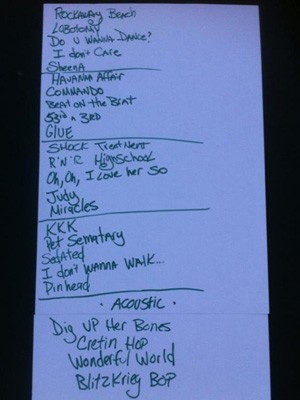 ROCKAWAY BEACH
LOBOTOMY
DO U WANNA DANCE?
I don't CARE
SheenA
HAVANNA AffAIR
COMMANDO
BEAT ON the BRAT
53rd n 3RD
GLUE
SHOCK TreatMENT
R'N'R HighSchool
Oh, Oh, I Love her SO
Judy
Miracles
KKK
Pet Sematary
SedAted
I don't WANNA WALK...
Pinhead
· ACOUSTIC ·
Dig UP Her Bones
Cretin Hop
Wonderful World
Blitzkrieg BOP